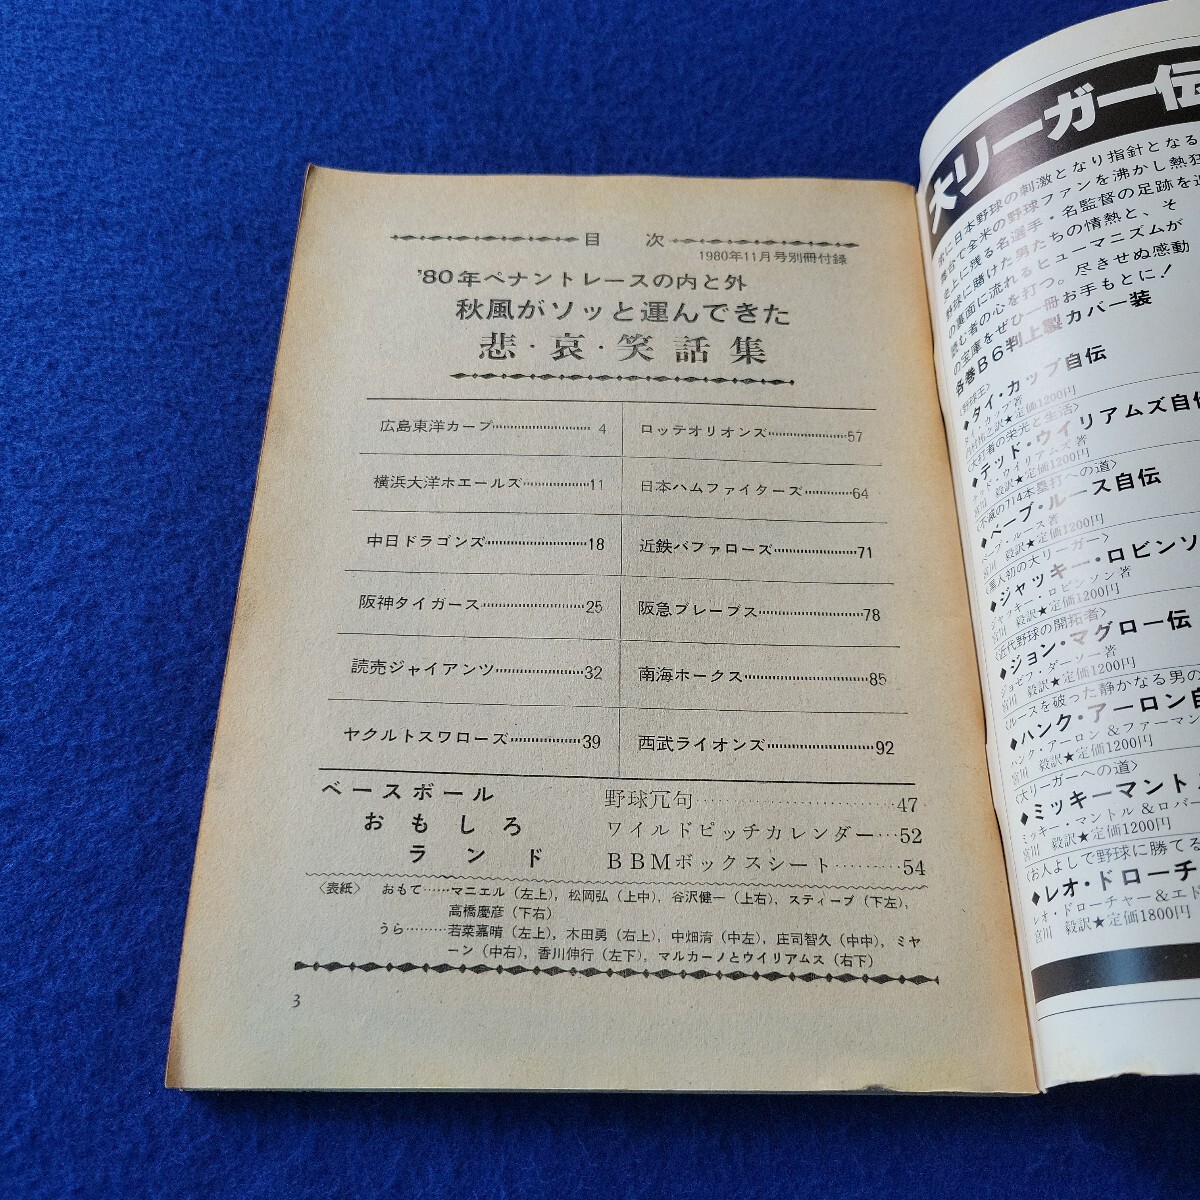 目次
1980年11月号別冊付録
'80年ペナントレースの内と外
秋風がソッと運んできた
悲・哀・笑話集
広島東洋カープ 4
横浜大洋ホエールズ 11
中日ドラゴンズ 18
阪神タイガース 25
読売ジャイアンツ 32
ヤクルトスワローズ 39
ロッテオリオンズ 57
日本ハムファイターズ 64
近鉄バファローズ 71
阪急ブレーブス 78
南海ホークス 85
西武ライオンズ 92
ベースボール
おもしろ
ランド
野球冗句 47
ワイルドピッチカレンダー 52
BBMボックスシート 54
〈表紙〉 おもて……マニエル（左上），松岡弘（上中），谷沢健一（上右），スティーブ（下左），
高橋慶彦（下右）
うら………若菜嘉晴（左上），木田勇（右上），中畑清（中左），庄司智久（中中），ミヤ
ーン（中右），香川伸行（左下），マルカーノとウイリアムス（右下）
3
大リーガー伝
に日本野球の刺激となり指針となる
台で全米の野球ファンを沸かし熱狂
史上に残る名選手・名監督の足跡を
野球に賭けた男たちの情熱と、そ
の裏面に流れるヒューマニズムが
読む者の心を打つ。尽きせぬ感動
の宝庫をぜひ一冊お手もとに！
各巻B6判上製カバー装
〈野球王〉
◆タイ・カップ自伝
タイ・カップ著
内村祐之訳★定価1200円
〈大打者の栄光と生活〉
◆テッド・ウイリアムズ自伝
テッド・ウイリアムズ著
宮川 毅訳★定価1200円
〈不滅の714本塁打への道〉
◆ベーブ・ルース自伝
ベーブ・ルース著
宮川 毅訳★定価1200円
〈黒人初の大リーガー〉
◆ジャッキー・ロビンソ
ジャッキー・ロビンソン著
宮川 毅訳★定価1200円
〈近代野球の開拓者〉
◆ジョン・マグロー伝
ジョゼフ・ダーソー著
宮川 毅訳★定価1200円
〈ルースを破った静かなる男の
◆ハンク・アーロン自
ハンク・アーロン&ファーマン
宮川 毅訳★定価1200円
〈大リーガーへの道〉
◆ミッキーマントル
ミッキー・マントル&ロバー
宮川 毅訳★定価1200円
〈お人よしで野球に勝てる
◆レオ・ドローチ
レオ・ドローチャー&エド
宮川 毅訳★定価1800円